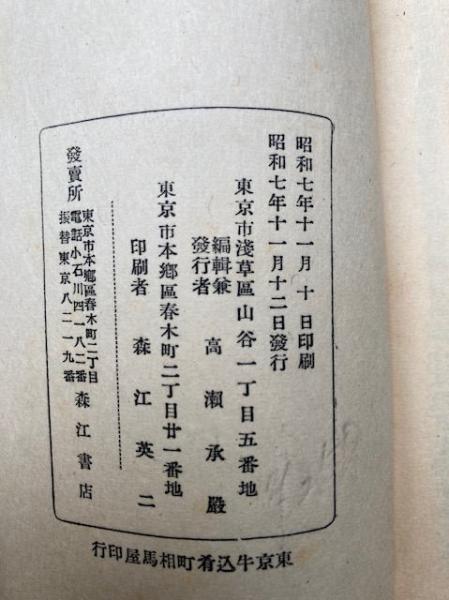 昭和七年十一月 十 日印刷
昭和七年十一月十二日發行
東京市淺草區山谷一丁目五番地
編輯兼
發行者 高瀨承嚴
東京市本鄕區春木町二丁目廿一番地
印刷者 森江英二
發賣所
東京市本鄕區春木町二丁目
電話小石川四一八二番
振替東京八二一九番
森江書店
東京牛込肴町相馬屋印行